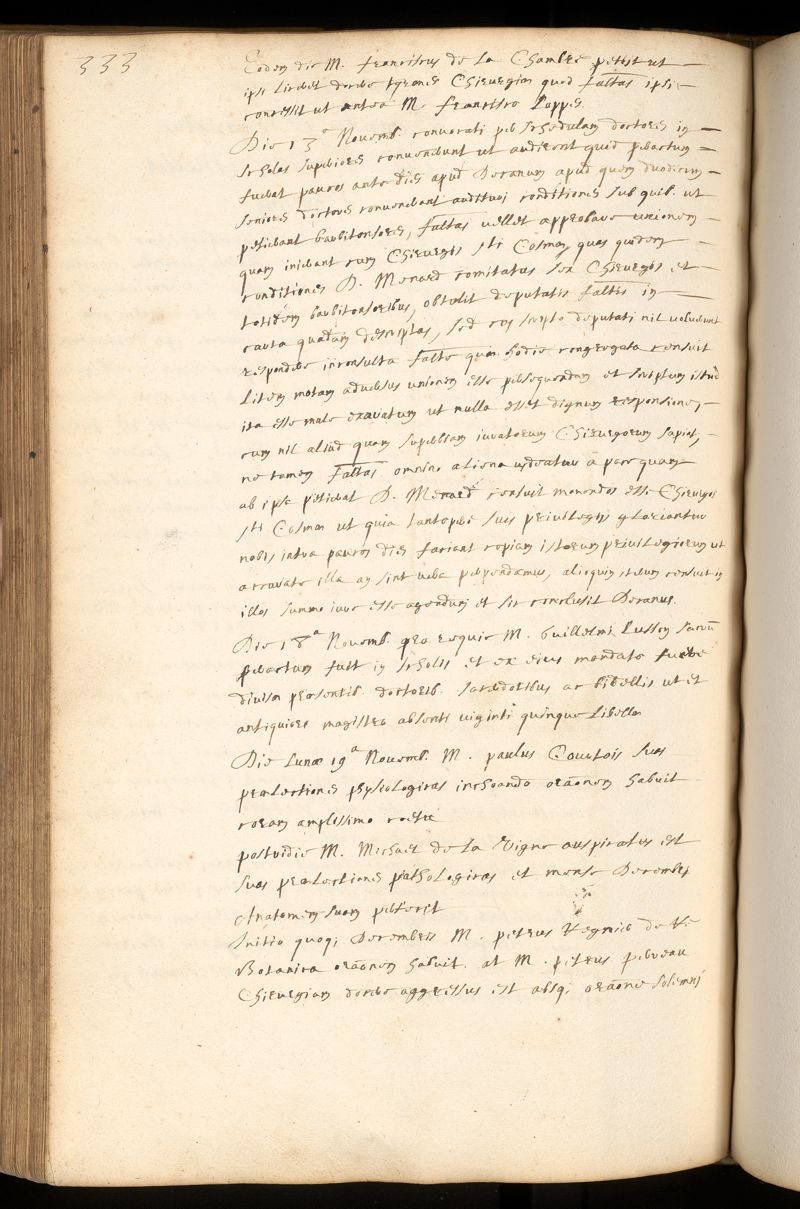 333
Eodem die M. Franciscus de la Chambre petiit ut
ipsi liceret docere tyrones Chirurgiam quod facltas ipsi
concessit ut antea M. Francisco Lopper.
Die 13ᵃ Novemb. convocati per schedulam doctores in
scholas superiores convenerunt ut audirent quid peractum
fuerat paucos ante dies apud Decanum apud quem duodecim
seniores doctores convenerant audituri conditiones sub quib. ut
petebant barbitonsores, facltas vellet approbare unionem
quam inierant cum Chirurgis sti Cosmæ, quas quidem
conditiones D. Menard comitatus sex Chirurgis et
totidem barbitonsoribus, obtulit deputatis facltis in
carta quadam descriptas, sed eos scripto deputati nil voluerunt
respondere inconsulta facltte quæ hodie congregata censuit
litem motam adversus unionem esse persequendam et scriptum istud
ita esse male exaratum ut nulla esset dignum responsione,
cum nil aliud quam superbiam iuratorum Chirurgorum sapiat,
ne tamen facltas omnino aliena videatur a pace quam
ab ipsa petebat D. Menard censuit monendos esse Chirurgos
sti Cosmæ ut quia tantopere suis privilegiis gloriantur
nobis intra paucos dies faciant copiam istorum privilegiorum ut
accurate illa an sint vera perpendamus, alioquin iterum censuit in
illos summo iure esse agendum et sic conclusit Decanus.
Die 18ᵃ Novemb. pro exequiis M. Guillelmi Lusson sacrū
peractum fuit in scholis et ex eius mandato fuere
divisa præsentib. doctorib. sacerdotibus ac bidellis ut et
antiquiori magistro absenti viginti quinque libellæ
Die lunæ 19ᵃ Novemb. M. paulus Courtois suas
prælectiones physiologicas inchoando orāonem habuit
coram amplissimo coetu
postridie M. Michael de la Vigne auspicatus est
suas prælectiones pathologicas et mense Decembri
Anatomen suam perfecit
Initio quoq; Decembris M. petrus Regnier de re
Botanica orāonem habuit. at M. petrus perreau
Chirurgiam docere aggressus est absq; orāone solemni